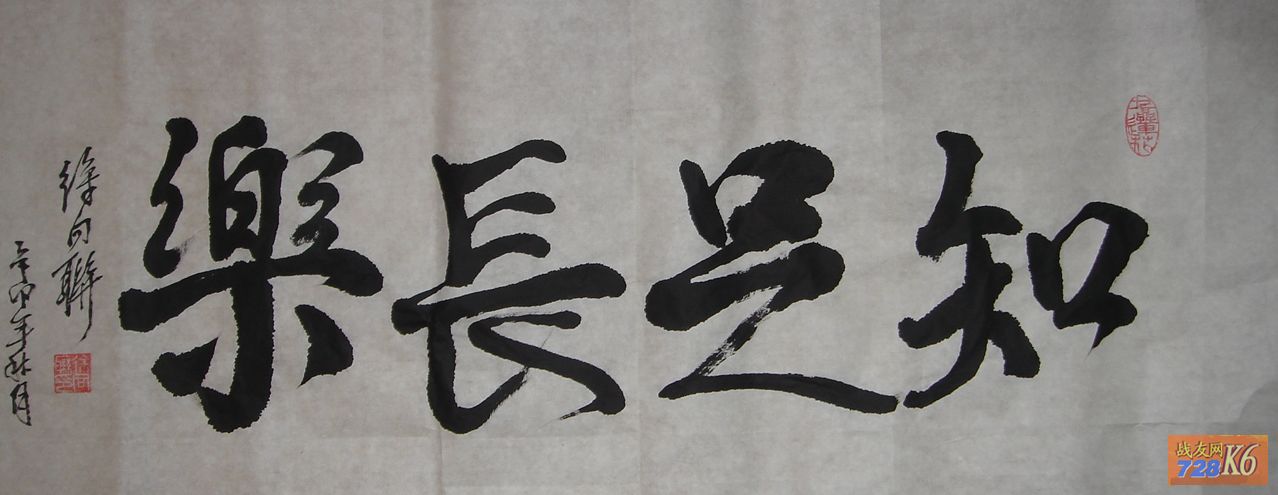 知足長樂
徐向聯
战友网
728K6